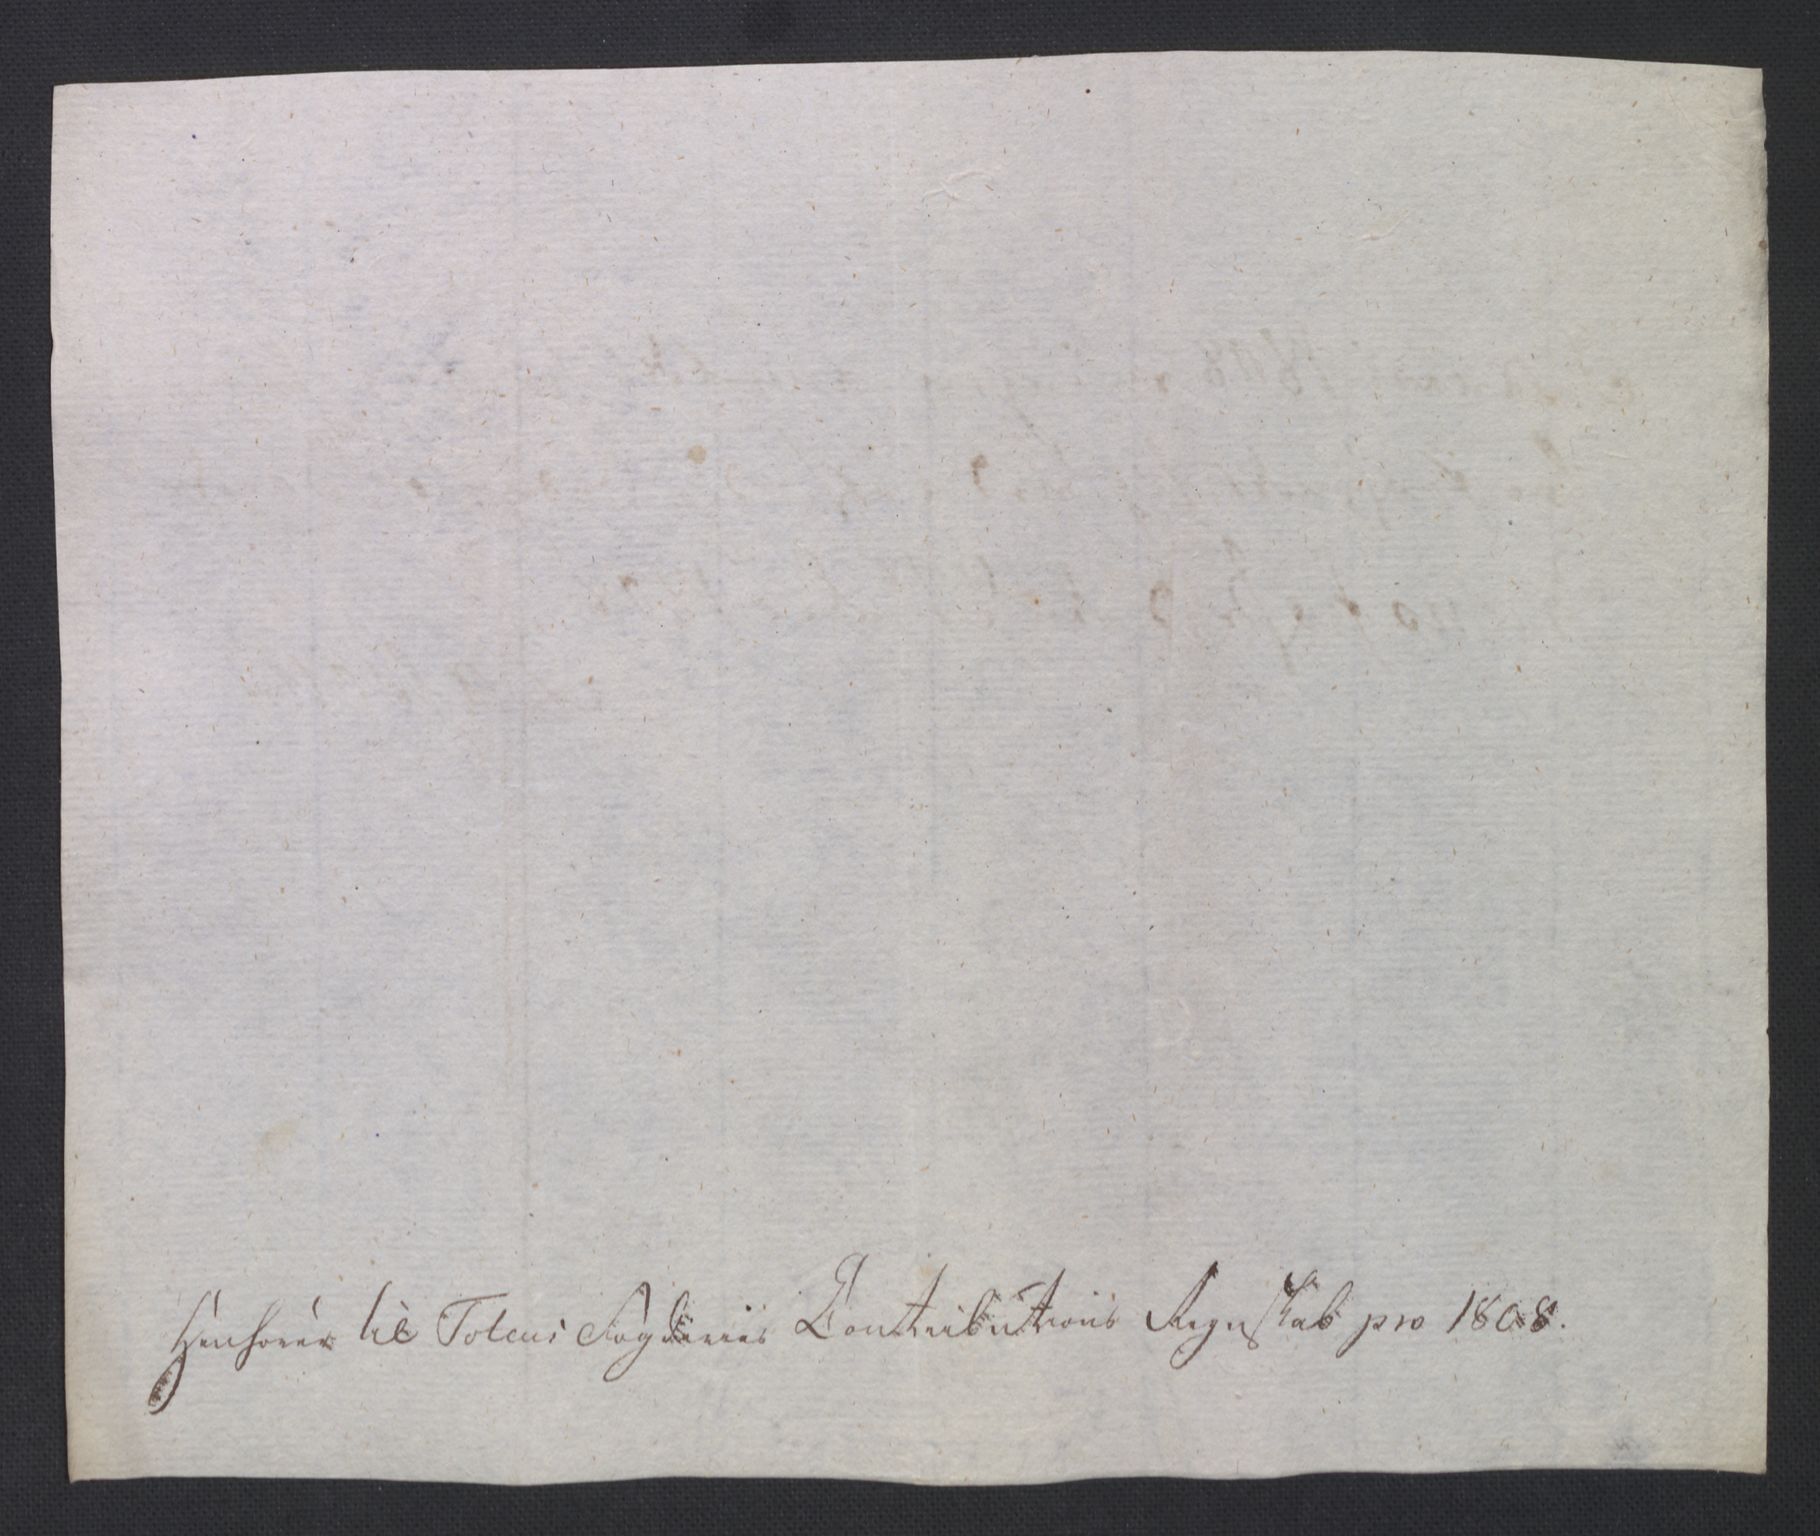 Henhører til Totens Fogderies Contributions Regnskab pro 1808.